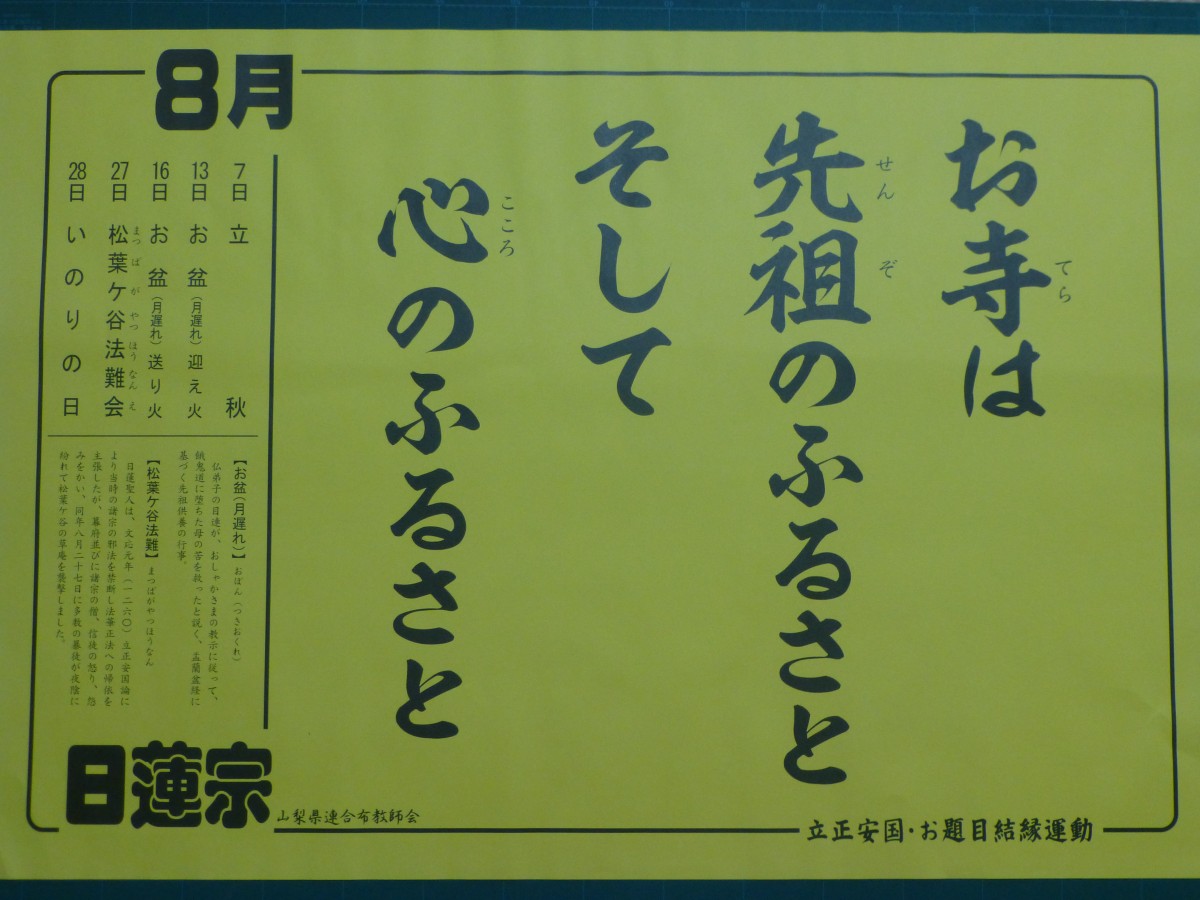 お寺は
てら
先祖のふるさと
せんぞ
そして
心のふるさと
こころ
8月
7日 立秋
13日 お盆(月遅れ)迎え火
16日 お盆(月遅れ)送り火
27日 松葉ケ谷法難会
まつばがやつほうなんえ
28日 いのりの日
【お盆(月遅れ)】おぼん(つきおくれ)
仏弟子の目連が、おしゃかさまの教示に従って、
餓鬼道に堕ちた母の苦を救ったと説く、盂蘭盆経に
基づく先祖供養の行事。
【松葉ケ谷法難】まつばがやつほうなん
日蓮聖人は、文応元年(一二六〇)立正安国論に
より当時の諸宗の邪法を禁断し法華正法への帰依を
主張したが、幕府並びに諸宗の僧、信徒の怒り、怨
みをかい、同年八月二十七日に多数の暴徒が夜陰に
紛れて松葉ケ谷の草庵を襲撃しました。
日蓮宗
山梨県連合布教師会
立正安国・お題目結縁運動